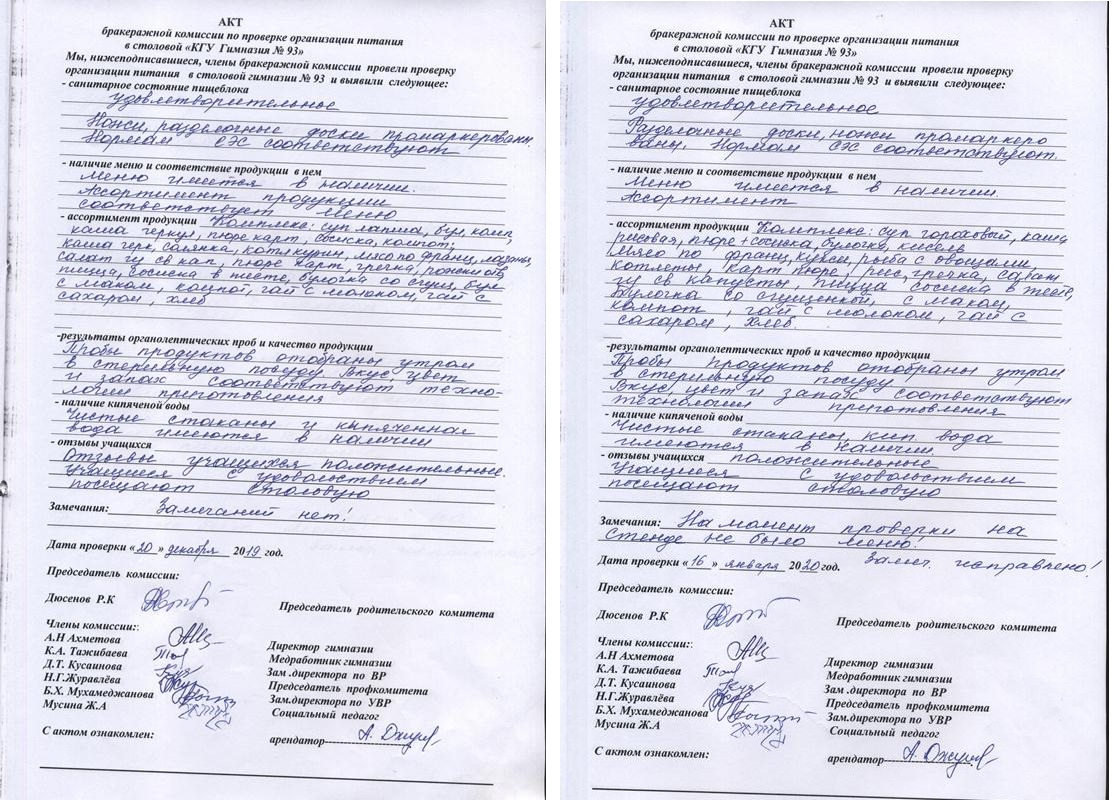 АКТ
бракеражной комиссии по проверке организации питания
в столовой «КГУ Гимназия № 93»
Мы, нижеподписавшиеся, члены бракеражной комиссии провели проверку
организации питания в столовой гимназии № 93 и выявили следующее:
- санитарное состояние пищеблока
удовлетворительное
Ножи, разделочные доски промаркерованы
Нормам СЭС соответствуют
- наличие меню и соответствие продукции в нем
Меню имеется в наличии.
Ассортимент продукции
соответствует меню
- ассортимент продукции Комплекс: суп лапша, бул, комп,
каша геркул, пюре карт, сосиска, компот,
каша герк, солянка, котл курин, мясо по франц, лазанья,
салат из св кап, пюре карт, гречка, рожки отв
пицца, сосиска в тесте, булочка со сгущ, бул
с маком, компот, чай с молоком, чай с
сахаром, хлеб
-результаты органолептических проб и качество продукции
Пробы продуктов отобраны утром
в стерильную посуду. Вкус, цвет
и запах соответствуют техно-
логии приготовления
- наличие кипяченой воды
Чистые стаканы и кипяченная
вода имеются в наличии
- отзывы учащихся
Отзывы учащихся положительные.
Учащиеся с удовольствием
посещают столовую
Замечания: Замечаний нет!
Дата проверки «20» декабря 2019 год.
Председатель комиссии:
Дюсенов Р.К Председатель родительского комитета
Члены комиссии:
А.Н Ахметова Директор гимназии
К.А. Тажибаева Медработник гимназии
Д.Т. Кусаинова Зам .директора по ВР
Н.Г.Журавлёва Председатель профкомитета
Б.Х. Мухамеджанова Зам.директора по УВР
Мусина Ж.А Социальный педагог
С актом ознакомлен: арендатор
АКТ
бракеражной комиссии по проверке организации питания
в столовой «КГУ Гимназия № 93»
Мы, нижеподписавшиеся, члены бракеражной комиссии провели проверку
организации питания в столовой гимназии № 93 и выявили следующее:
- санитарное состояние пищеблока
удовлетворительное
Разделочные доски, ножи промаркеро
ваны. Нормам СЭС соответствуют.
- наличие меню и соответствие продукции в нем
Меню имеется в наличии.
Ассортимент
- ассортимент продукции Комплекс: суп гороховый, каша
рисовая, пюре + сосиска, булочка, кисель
Мясо по франц, куксы, рыба с овощами,
котлеты, карт пюре, рис, гречка, салат
из св капусты, пицца сосиска в тесте,
булочка со сгущенкой, с маком,
компот, чай с молоком, чай с
сахаром, хлеб.
-результаты органолептических проб и качество продукции
Пробы продуктов отобраны утром
в стерильную посуду.
Вкус, цвет и запах соответствуют
технологии приготовления
- наличие кипяченой воды
Чистые стаканы, кип вода
имеются в наличии.
- отзывы учащихся положительные
Учащиеся с удовольствием
посещают столовую
Замечания: На момент проверки на
стенде не было меню!
Дата проверки «16» января 2020 год. Замеч. исправлено!
Председатель комиссии:
Дюсенов Р.К Председатель родительского комитета
Члены комиссии:
А.Н Ахметова Директор гимназии
К.А. Тажибаева Медработник гимназии
Д.Т. Кусаинова Зам .директора по ВР
Н.Г.Журавлёва Председатель профкомитета
Б.Х. Мухамеджанова Зам.директора по УВР
Мусина Ж.А Социальный педагог
С актом ознакомлен: арендатор